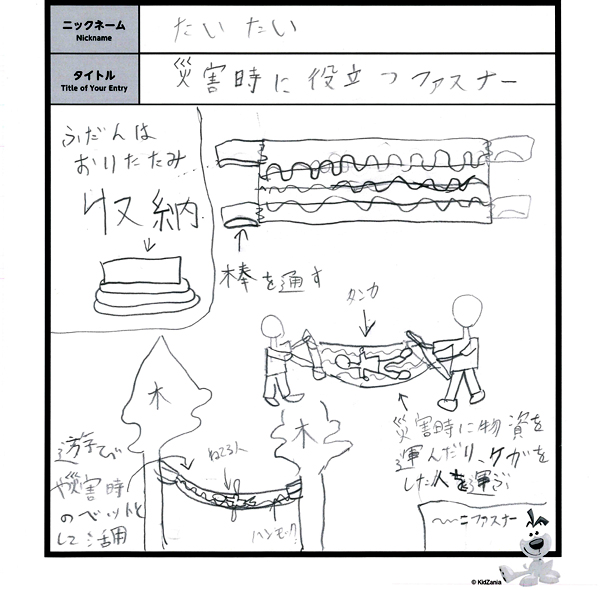 ニックネーム
Nickname
たいたい
タイトル
Title of Your Entry
災害時に役立つファスナー
ふだんは
おりたたみ
収納
棒を通す
タンカ
木
木
災害時に物資を
運んだり、ケガを
した人を運ぶ
ねてる人
ハンモック
や災害時
のベットと
して活用
〜〜=ファスナー
© KidZania